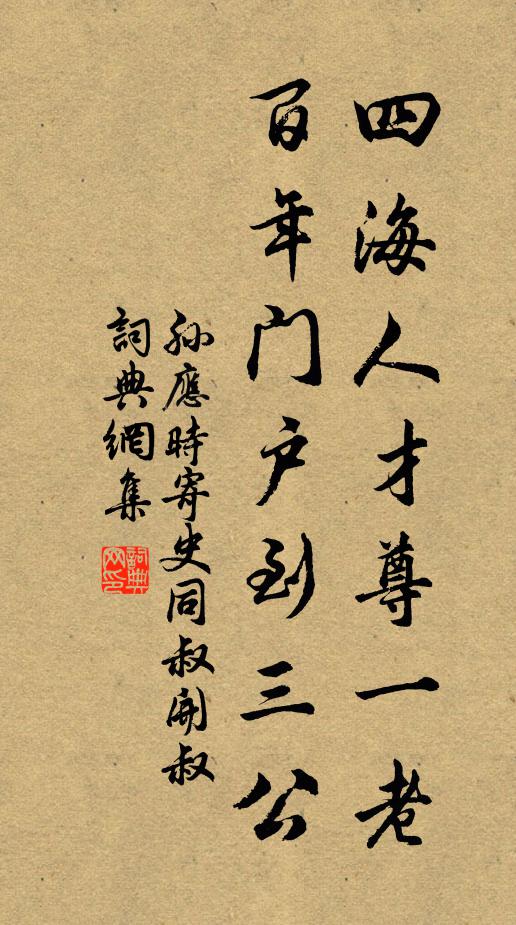 四海人才尊一老
百年門户到三公
孫應時寄史同叔開叔
詞典網集
詞典網印